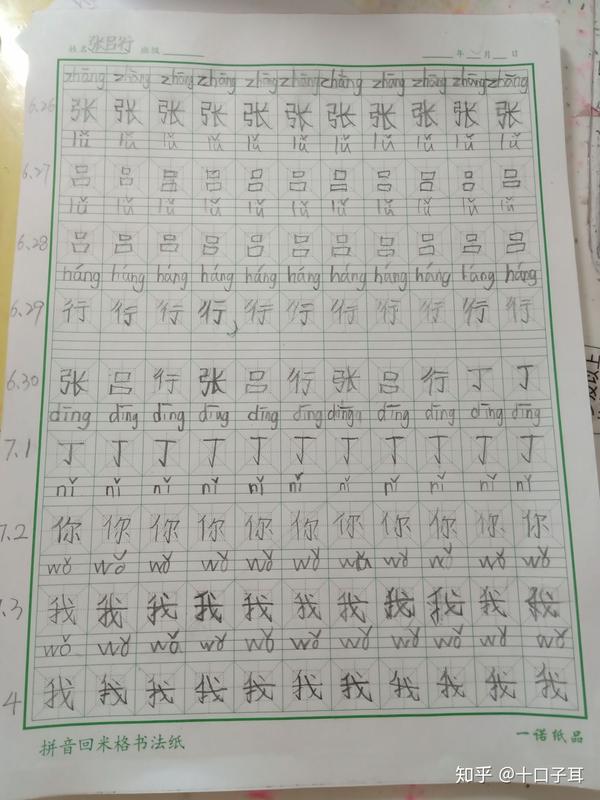 姓名 张吕行 班级 年 月 日
zhāng zhāng zhāng zhāng zhāng zhāng zhāng zhāng zhāng zhāng zhāng
6.26 张 张 张 张 张 张 张 张 张 张 张
lǚ lǚ lǚ lǚ lǚ lǚ lǚ lǚ lǚ lǚ lǚ
6.27 吕 吕 吕 吕 吕 吕 吕 吕 吕 吕 吕
lǚ lǚ lǚ lǚ lǚ lǚ lǚ lǚ lǚ lǚ lǚ
6.28 吕 吕 吕 吕 吕 吕 吕 吕 吕 吕 吕
háng háng háng háng háng háng háng háng háng háng háng
6.29 行 行 行 行 行 行 行 行 行 行 行
6.30 张 吕 行 张 吕 行 张 吕 行 丁 丁
dīng dīng dīng dīng dīng dīng dīng dīng dīng dīng dīng
7.1 丁 丁 丁 丁 丁 丁 丁 丁 丁 丁 丁
nǐ nǐ nǐ nǐ nǐ nǐ nǐ nǐ nǐ nǐ nǐ
7.2 你 你 你 你 你 你 你 你 你 你 你
wǒ wǒ wǒ wǒ wǒ wǒ wǒ wǒ wǒ wǒ wǒ
.3 我 我 我 我 我 我 我 我 我 我 我
wǒ wǒ wǒ wǒ wǒ wǒ wǒ wǒ wǒ wǒ wǒ
4 我 我 我 我 我 我 我 我 我 我 我
拼音回米格书法纸 一诺纸品
知乎 @十口子耳